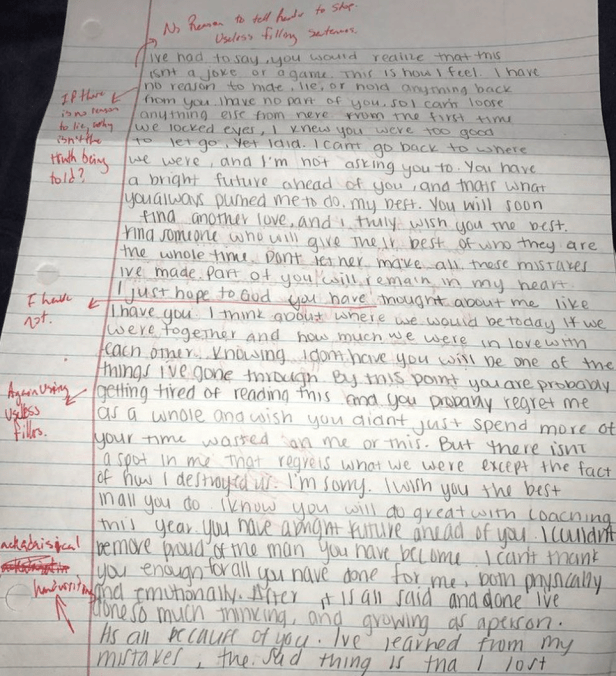 No Reason to tell her to stop.
Useless filling sentences.
ive had to say, you would realize that this
isnt a joke or a game. This is how I feel. I have
no reason to hide, lie, or hold anything back
from you. I have no part of you, so I cant loose
anything else from here. From the first time
we locked eyes, I knew you were too good
to let go, yet I did. I cant go back to where
we were, and I'm not asking you to. You have
a bright future ahead of you, and thats what
you always pushed me to do, my best. You will soon
find another love, and i truly wish you the best.
Find someone who will give their best of who they are
the whole time. Dont let her make all these mistakes
ive made. Part of you will remain in my heart.
I just hope to God you have thought about me like
I have you. I think about where we would be today if we
were together and how much we were in love with
each other. Knowing I dont have you will be one of the
things I've gone through. By this point you are probably
getting tired of reading this and you probably regret me
as a whole and wish you didnt just spend more of
your time wasted on me or this. But there isnt
a spot in me that regrets what we were except the fact
of how I destroyed us. I'm sorry. I wish you the best
in all you do. I know you will do great with coaching
this year. You have a bright future ahead of you. I couldn't
be more proud of the man you have become. I cant thank
you enough for all you have done for me, both physically
and emotionally. After it is all said and done I've
done so much thinking, and growing as a person.
Its all because of you. I've learned from my
mistakes, the sad thing is tha I lost
If there
is no reason
to lie, why
isn't the
truth being
told?
I have
not.
Again using
useless
fillers.